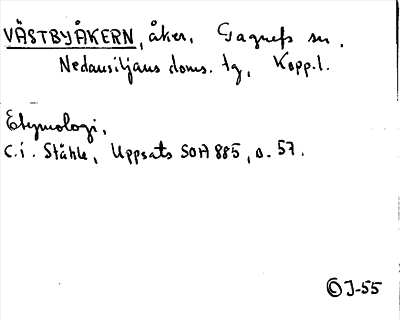 VÄSTBYÅKERN, åker, Gagnefs sn,
Nedansiljans doms. tg, Kopp. l.
Etymologi,
C.I. Ståhle, Uppsats SOA 885, s. 57.
© J-55